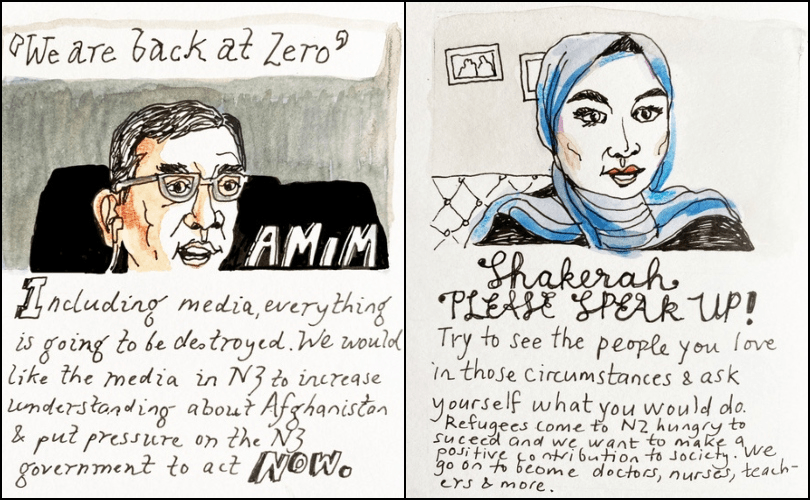 "We are back at Zero"
AMIM
Including media, everything
is going to be destroyed. We would
like the media in NZ to increase
understanding about Afghanistan
& put pressure on the NZ
government to act NOW.
Shakerah
PLEASE SPEAK UP!
Try to see the people you love
in those circumstances & ask
yourself what you would do.
Refugees come to NZ hungry to
suceed and we want to make a
positive contribution to society. We
go on to beome doctors, nurses, teach-
ers & more.